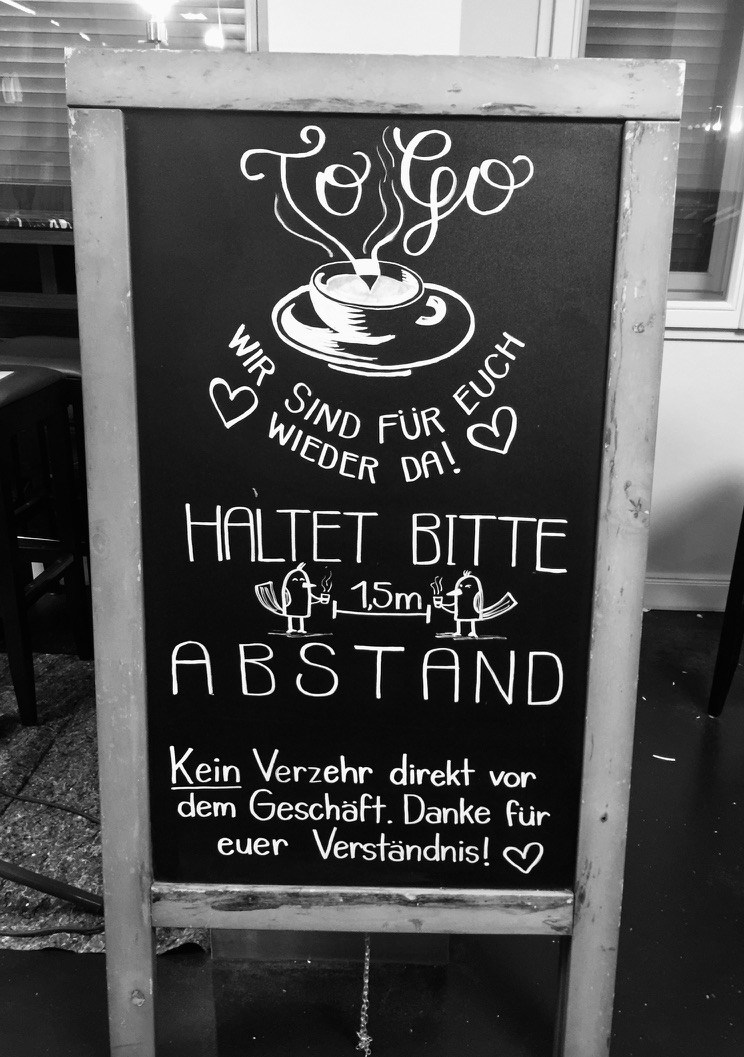 To Go
WIR SIND FÜR EUCH
WIEDER DA!
HALTET BITTE
1,5m
ABSTAND
Kein Verzehr direkt vor
dem Geschäft. Danke für
euer Verständnis!